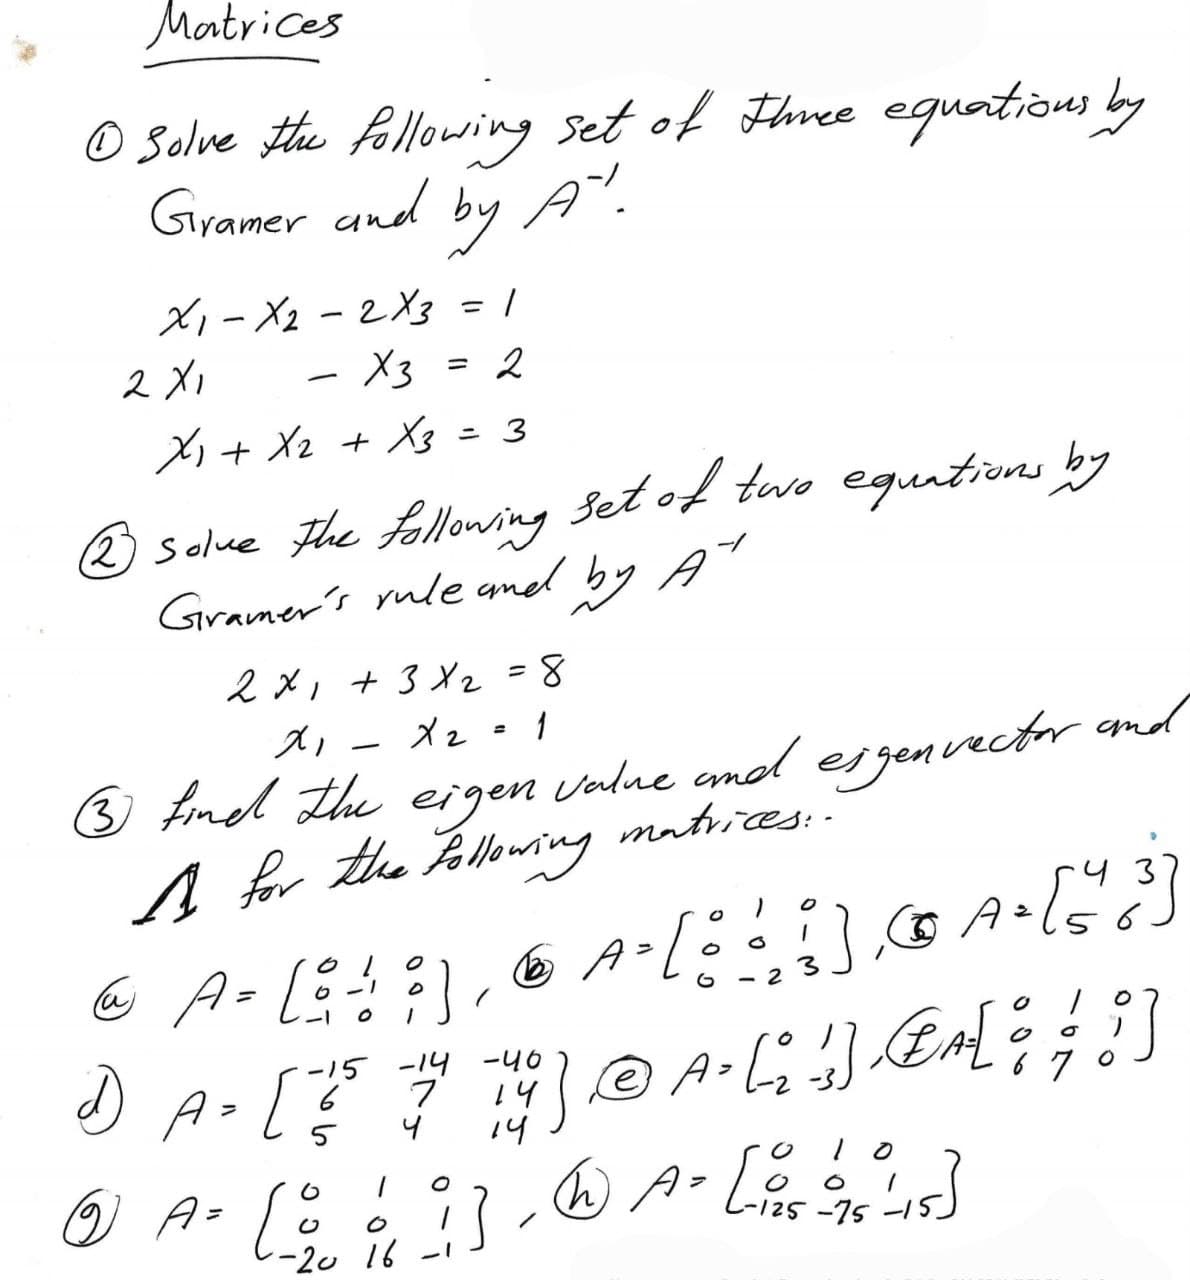 Matrices
① Solve the following set of three equations by
Gramer and by A⁻¹.
x₁ - x₂ - 2x₃ = 1
2x₁ - x₃ = 2
x₁ + x₂ + x₃ = 3
② solve the following set of two equations by
Gramer's rule and by A⁻¹
2x₁ + 3x₂ = 8
x₁ - x₂ = 1
③ find the eigen value and eigenvector and
Λ for the following matrices:-
ⓐ A = [0 1 0; 0 -1 0; -1 0 1], ⓑ A = [0 1 0; 0 0 1; 0 -2 3], ⓒ A = [4 3; 5 6]
d) A = [-15 -14 -40; 6 7 14; 5 4 14] ⓔ A = [0 1; -2 -3], ⓕ A = [0 1 0; 0 0 1; 6 7 0]
ⓖ A = [0 1 0; 0 0 1; -20 16 -1], ⓗ A = [0 1 0; 0 0 1; -125 -75 -15]